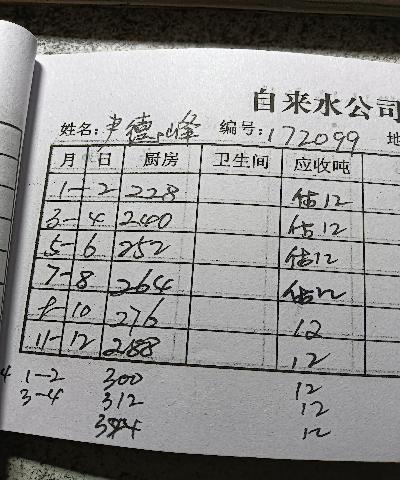 自来水公司
姓名: 尹德峰 编号: 172099
月 日 厨房 卫生间 应收吨
1-2 228 估12
3-4 240 估12
5-6 252 估12
7-8 264 估12
9-10 276 12
11-12 288 12
4 1-2 300 12
3-4 312 12
324 12